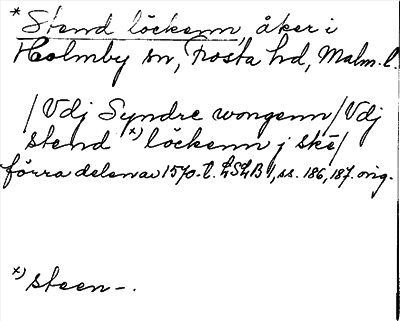 * Stend löckenn, åker i
Holmby sn, Frosta hd, Malm. l.
/Vdj Syndre wongenn/Vdj
stend *) löckenn j skē/
förra delen av 1570-t. LSLB 1, ss. 186, 187. orig.
*) steen-.